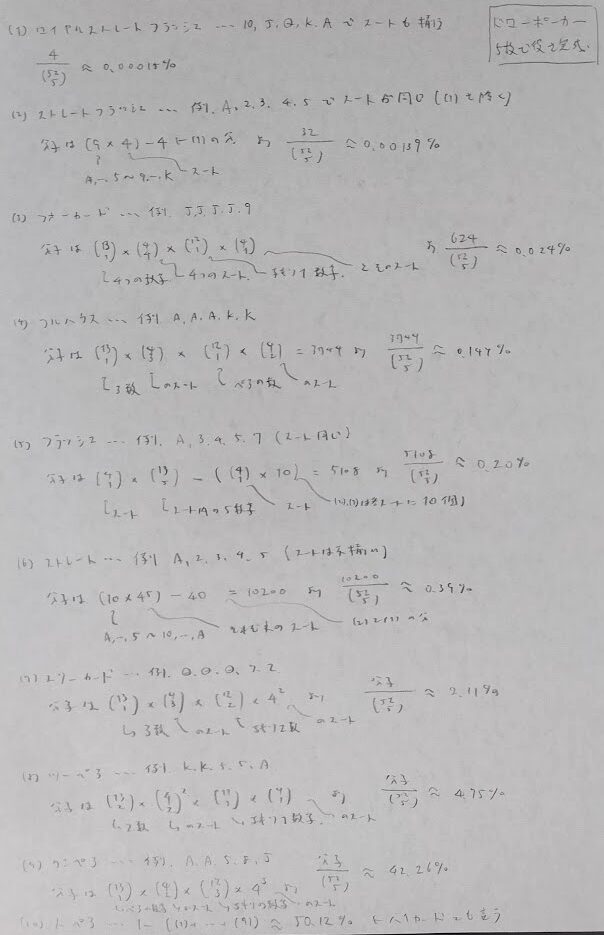 ドローポーカー
5枚で役で完成.
(1) ロイヤルストレートフラッシュ … 10, J, Q, K, A でスートも揃う
4/(52 5) ≈ 0.00015%
(2) ストレートフラッシュ … 例. A, 2, 3, 4, 5 でスートが同じ [(1)を除く]
分子は (9 × 4) - 4 ← (1)の分 より 32/(52 5) ≈ 0.00139%
A, -, 5 ~ 9, -, K スート
(3) フォーカード … 例. J, J, J, J, 9
分子は (13 1) × (4 4) × (12 1) × (4 1) より 624/(52 5) ≈ 0.024%
4つの数字 4つのスート 残り1数字. そのスート
(4) フルハウス … 例. A, A, A, K, K
分子は (13 1) × (4 3) × (12 1) × (4 2) = 3744 より 3744/(52 5) ≈ 0.144%
3数 のスート ペアの数 のスート
(5) フラッシュ … 例. A, 3, 4, 5, 7 (スート同じ)
分子は (4 1) × (13 5) - ((4 1) × 10) = 5108 より 5108/(52 5) ≈ 0.20%
スート スート内の5数字 スート (1),(2)は各スートに10個
(6) ストレート … 例 A, 2, 3, 4, 5 (スートは不揃い)
分子は (10 × 4^5) - 40 = 10200 より 10200/(52 5) ≈ 0.39%
A, -, 5 ~ 10, -, A それぞれのスート (2)と(1)の分
(7) スリーカード … 例. Q, Q, Q, 7, 2
分子は (13 1) × (4 3) × (12 2) × 4^2 より 分子/(52 5) ≈ 2.11%
3数 のスート 残り2数 のスート
(8) ツーペア … 例. K, K, 5, 5, A
分子は (13 2) × (4 2)^2 × (11 1) × (4 1) より 分子/(52 5) ≈ 4.75%
2数 のスート 残り1数字. のスート
(9) ワンペア … 例. A, A, 5, 8, J 分子/(52 5) ≈ 42.26%
分子は (13 1) × (4 2) × (12 3) × 4^3 より
ペアの数字 のスート 残りの数字 のスート
(10) ノーペア … 1 - [(1)+…+(9)] ≈ 50.12% ← ハイカードとも言う